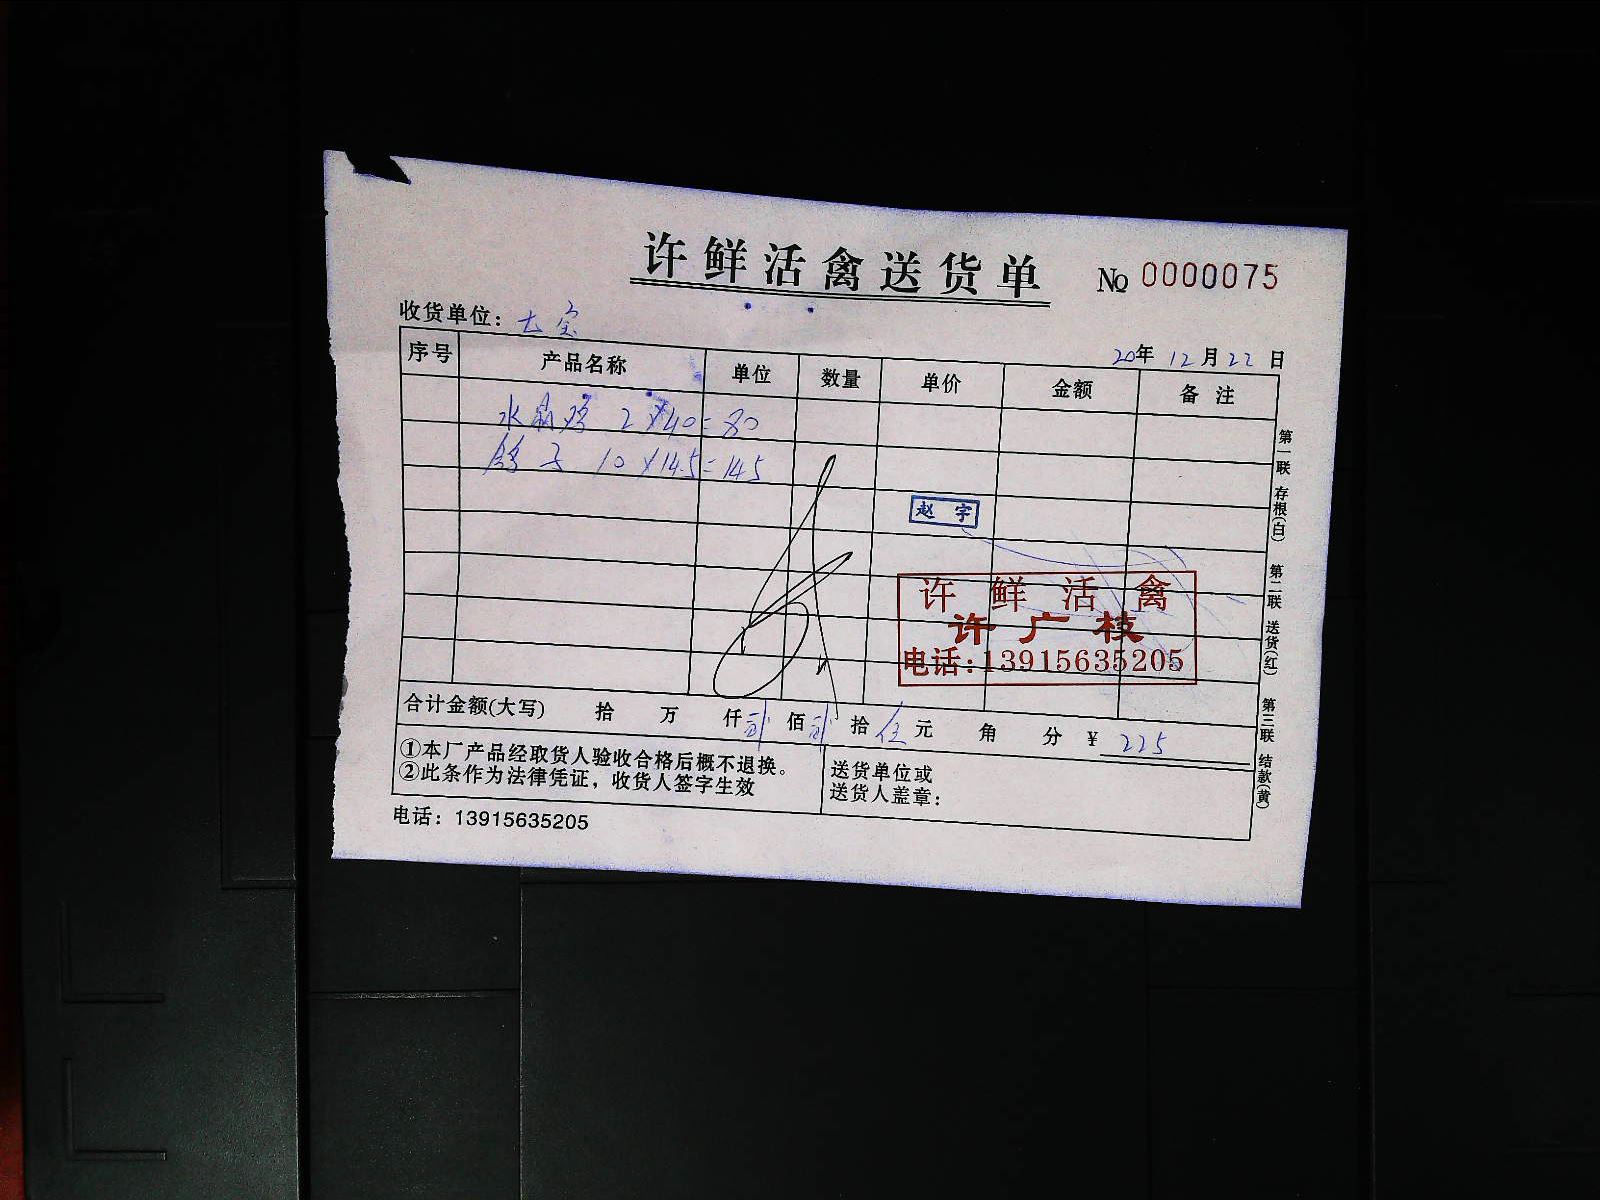 许鲜活禽送货单 No 0000075
收货单位：
20年 12月22日
序号 产品名称 单位 数量 单价 金额 备注
水 2×40=80
鸽子 10×14.5=145
赵宇
许鲜活禽
许广枝
电话：13915635205
合计金额(大写) 拾 万 仟 贰佰 贰拾 伍元 角 分 ¥ 225
①本厂产品经取货人验收合格后概不退换。
②此条作为法律凭证，收货人签字生效
送货单位或
送货人盖章：
电话：13915635205
第一联 存根(白) 第二联 送货(红) 第三联 结款(黄)